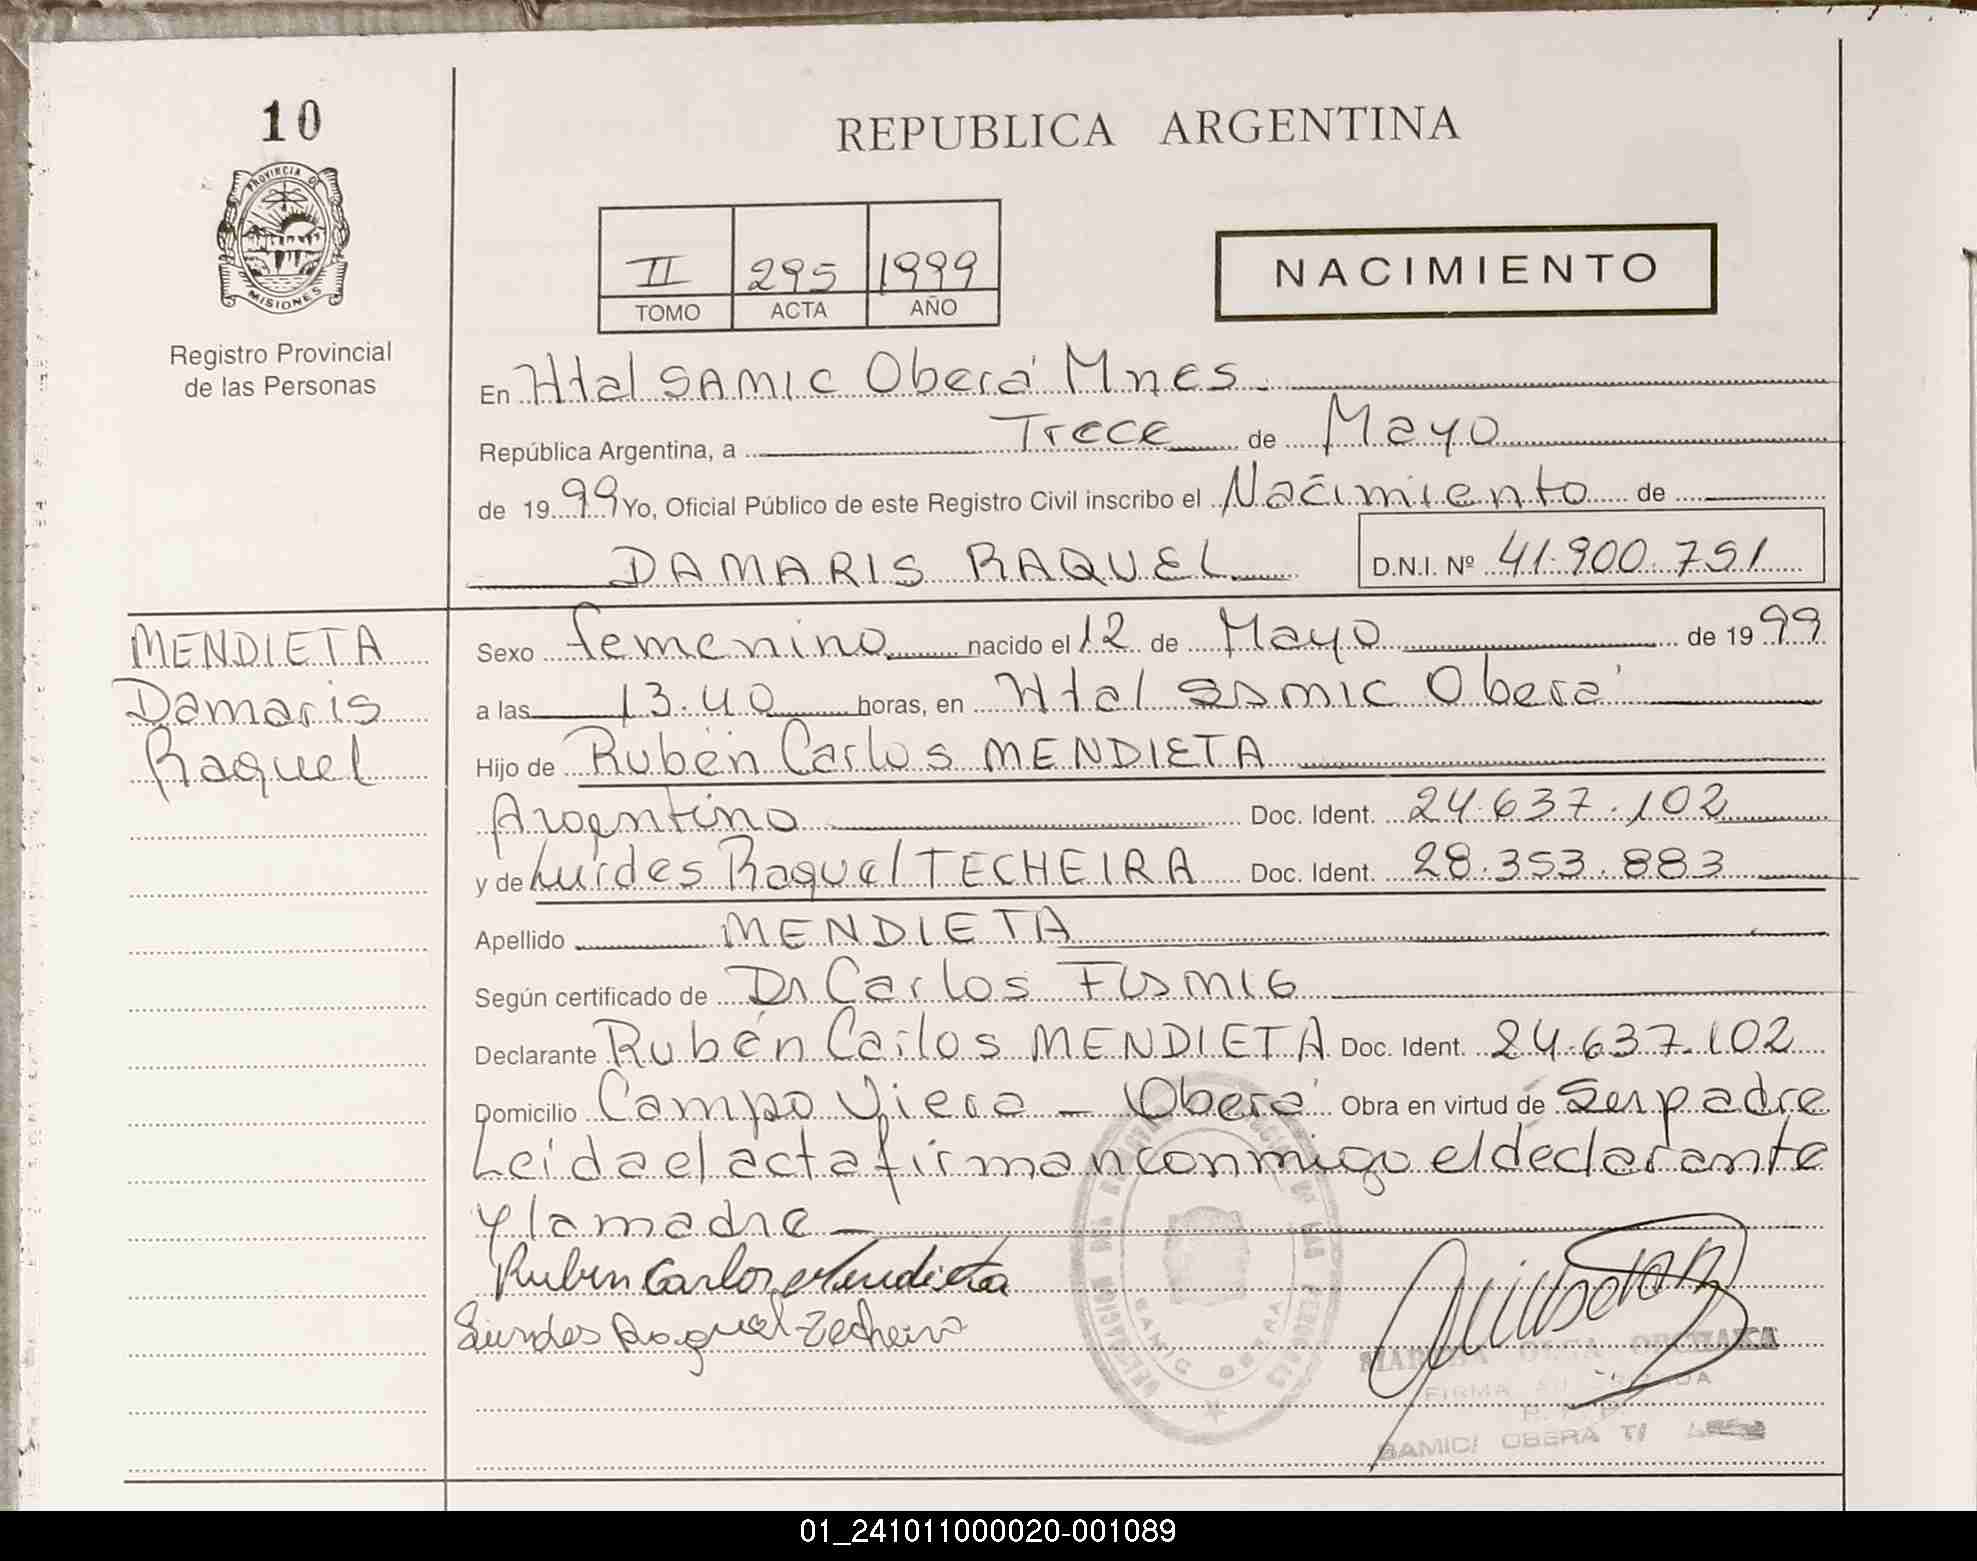 10
PROVINCIA DE
MISIONES
Registro Provincial
de las Personas
REPUBLICA ARGENTINA
II 295 1999
TOMO ACTA AÑO
NACIMIENTO
En Htal SAMIC Oberá Mnes
República Argentina, a Trece de Mayo
de 1999 Yo, Oficial Público de este Registro Civil inscribo el Nacimiento de
DAMARIS RAQUEL D.N.I. Nº 41.900.751
MENDIETA
Damaris
Raquel
Sexo femenino nacido el 12 de Mayo de 1999
a las 13.40 horas, en Htal samic Oberá
Hijo de Rubén Carlos MENDIETA
Argentino Doc. Ident. 24.637.102
y de Lurdes Raquel TECHEIRA Doc. Ident. 28.353.883
Apellido MENDIETA
Según certificado de Dr Carlos
Declarante Rubén Carlos MENDIETA Doc. Ident. 24.637.102
Domicilio Campo Viera - Oberá Obra en virtud de Ser padre
Leída el acta firman conmigo el declarante
y la madre
Ruben Carlos Mendieta
Lurdes Raquel Techeira
SAMIC OBERA
FIRMA
SAMIC OBERA
01_241011000020-001089